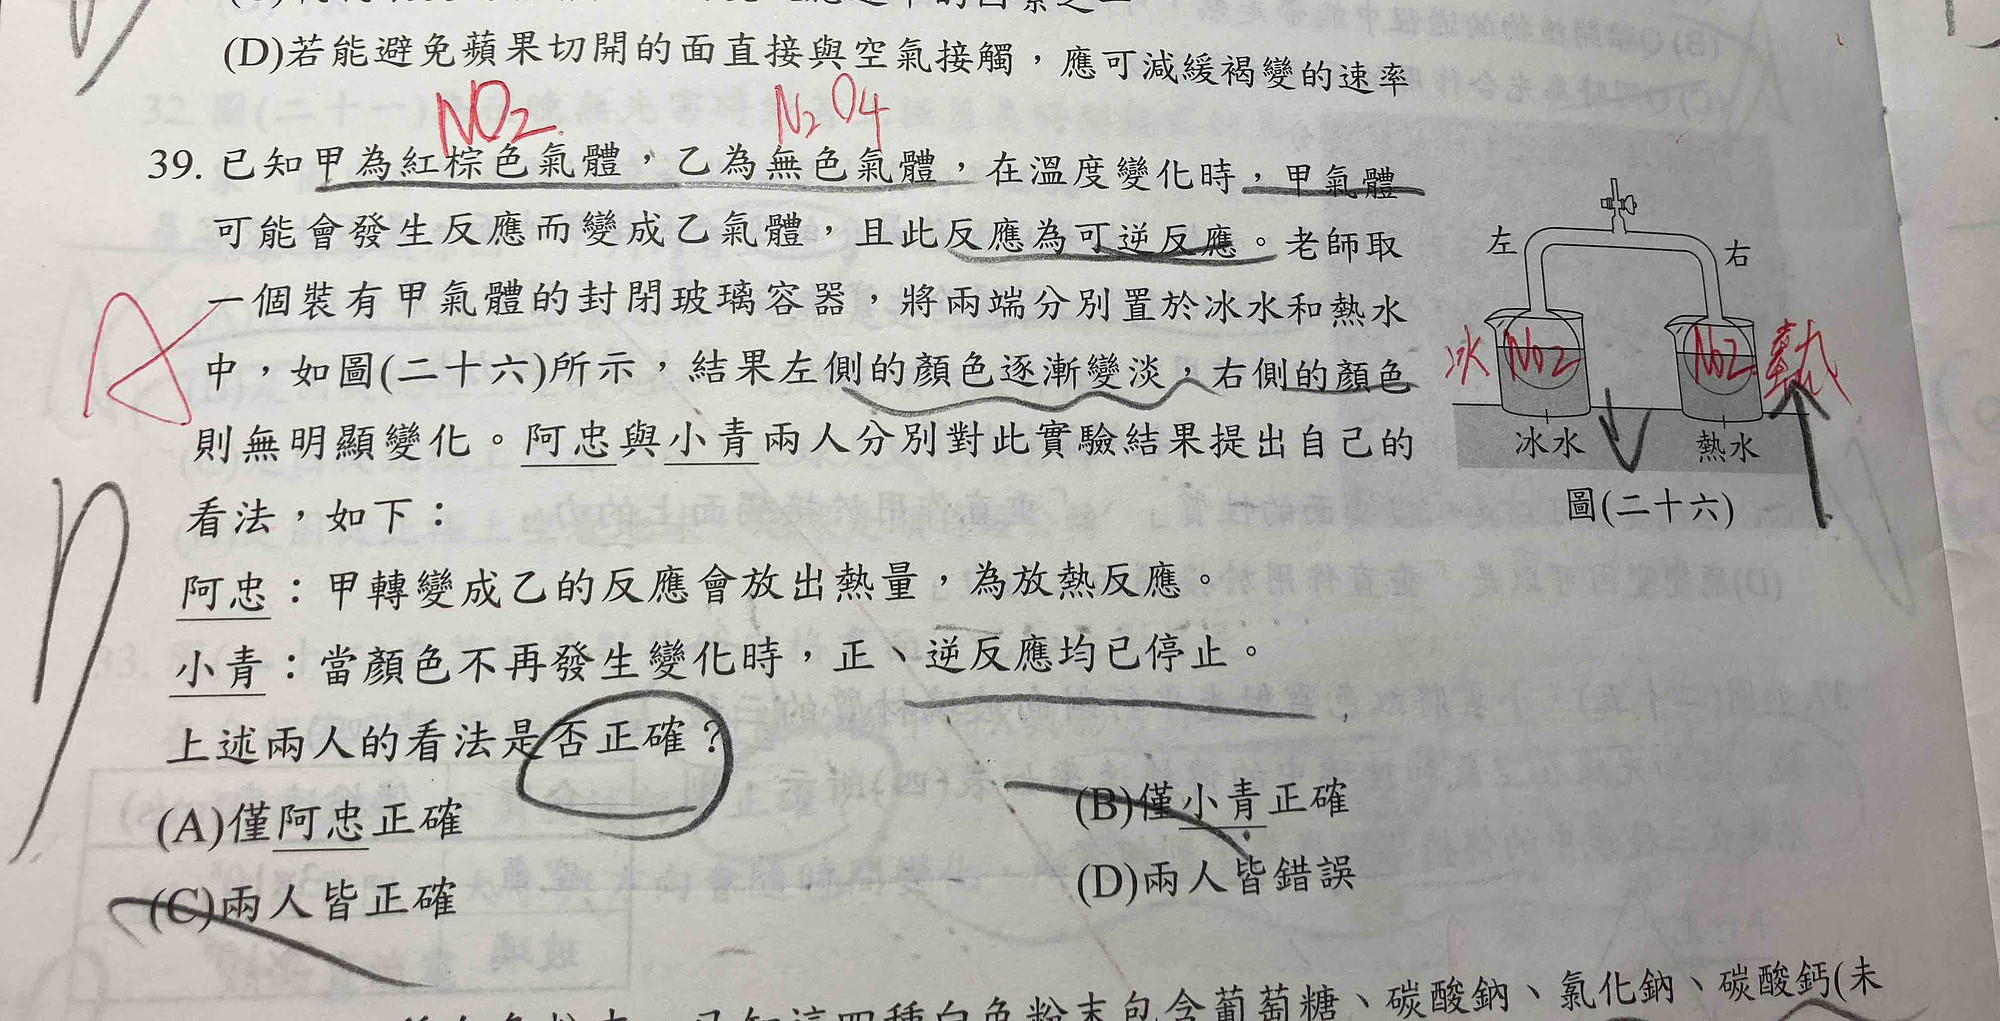 (D)若能避免蘋果切開的面直接與空氣接觸，應可減緩褐變的速率
NO2 N2O4
39. 已知甲為紅棕色氣體，乙為無色氣體，在溫度變化時，甲氣體
可能會發生反應而變成乙氣體，且此反應為可逆反應。老師取
一個裝有甲氣體的封閉玻璃容器，將兩端分別置於冰水和熱水
中，如圖(二十六)所示，結果左側的顏色逐漸變淡，右側的顏色
則無明顯變化。阿忠與小青兩人分別對此實驗結果提出自己的
看法，如下：
阿忠：甲轉變成乙的反應會放出熱量，為放熱反應。
小青：當顏色不再發生變化時，正、逆反應均已停止。
上述兩人的看法是否正確？
(A)僅阿忠正確
(B)僅小青正確
(C)兩人皆正確
(D)兩人皆錯誤
A
D
左 右
冰 NO2 NO2 熱
冰水 熱水
圖(二十六)
種白色粉末包含葡萄糖、碳酸鈉、氯化鈉、碳酸鈣(未